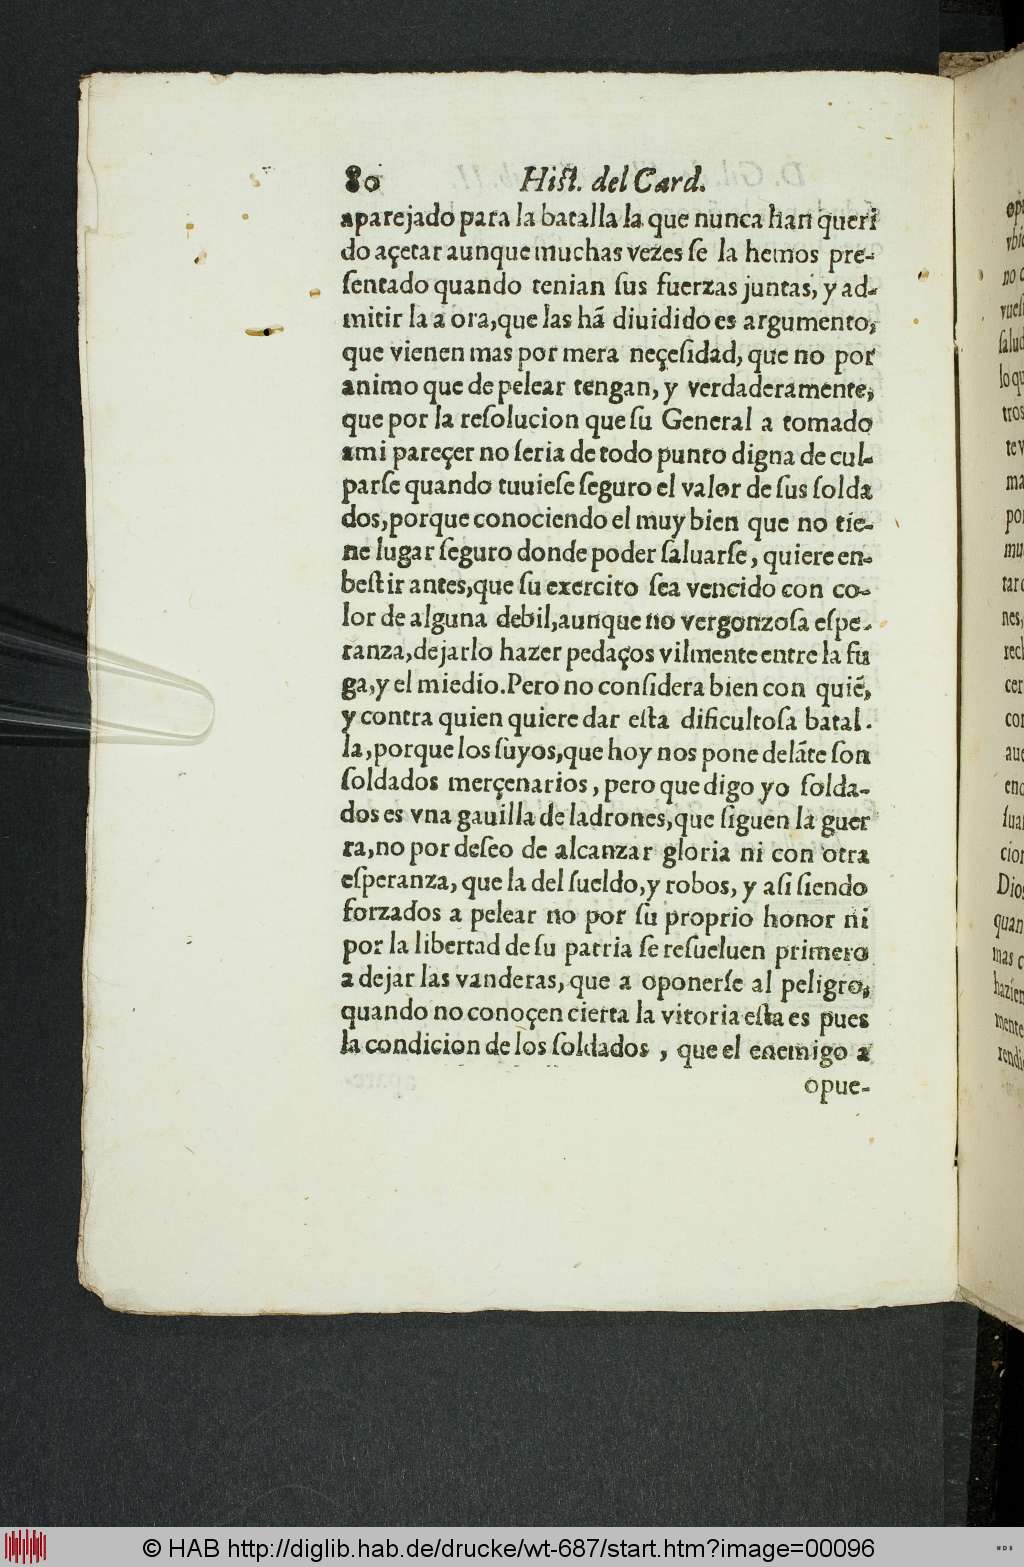 80 Hiſt. del Card.
aparejado para la batalla la que nunca han queri
do açetar aunque muchas vezes ſe la hemos pre-
ſentado quando tenian ſus fuerzas juntas, y ad-
mitir la a ora,que las hã diuidido es argumento,
que vienen mas por mera neçeſidad, que no por
animo que de pelear tengan, y verdaderamente,
que por la reſolucion que ſu General a tomado
ami pareçer no ſeria de todo punto digna de cul-
parſe quando tuuieſe ſeguro el valor de ſus ſolda
dos,porque conociendo el muy bien que no tie-
ne lugar ſeguro donde poder ſaluarſe, quiere en-
beſtir antes,que ſu exercito ſea vencido con co-
lor de alguna debil,aunque no vergonzoſa eſpe-
ranza,dejarlo hazer pedaços vilmente entre la fu
ga,y el miedio.Pero no conſidera bien con quiẽ,
y contra quien quiere dar eſta dificultoſa batal-
la,porque los ſuyos,que hoy nos pone delãte ſon
ſoldados merçenarios, pero que digo yo ſolda-
dos es vna gauilla de ladrones,que ſiguen la guer
ra,no por deſeo de alcanzar gloria ni con otra
eſperanza, que la del ſueldo,y robos, y aſi ſiendo
forzados a pelear no por ſu proprio honor ni
por la libertad de ſu patria ſe reſueluen primero
a dejar las vanderas, que a oponerſe al peligro,
quando no conoçen cierta la vitoria eſta es pues
la condicion de los ſoldados , que el enemigo a
opue-
© HAB http://diglib.hab.de/drucke/wt-687/start.htm?image=00096